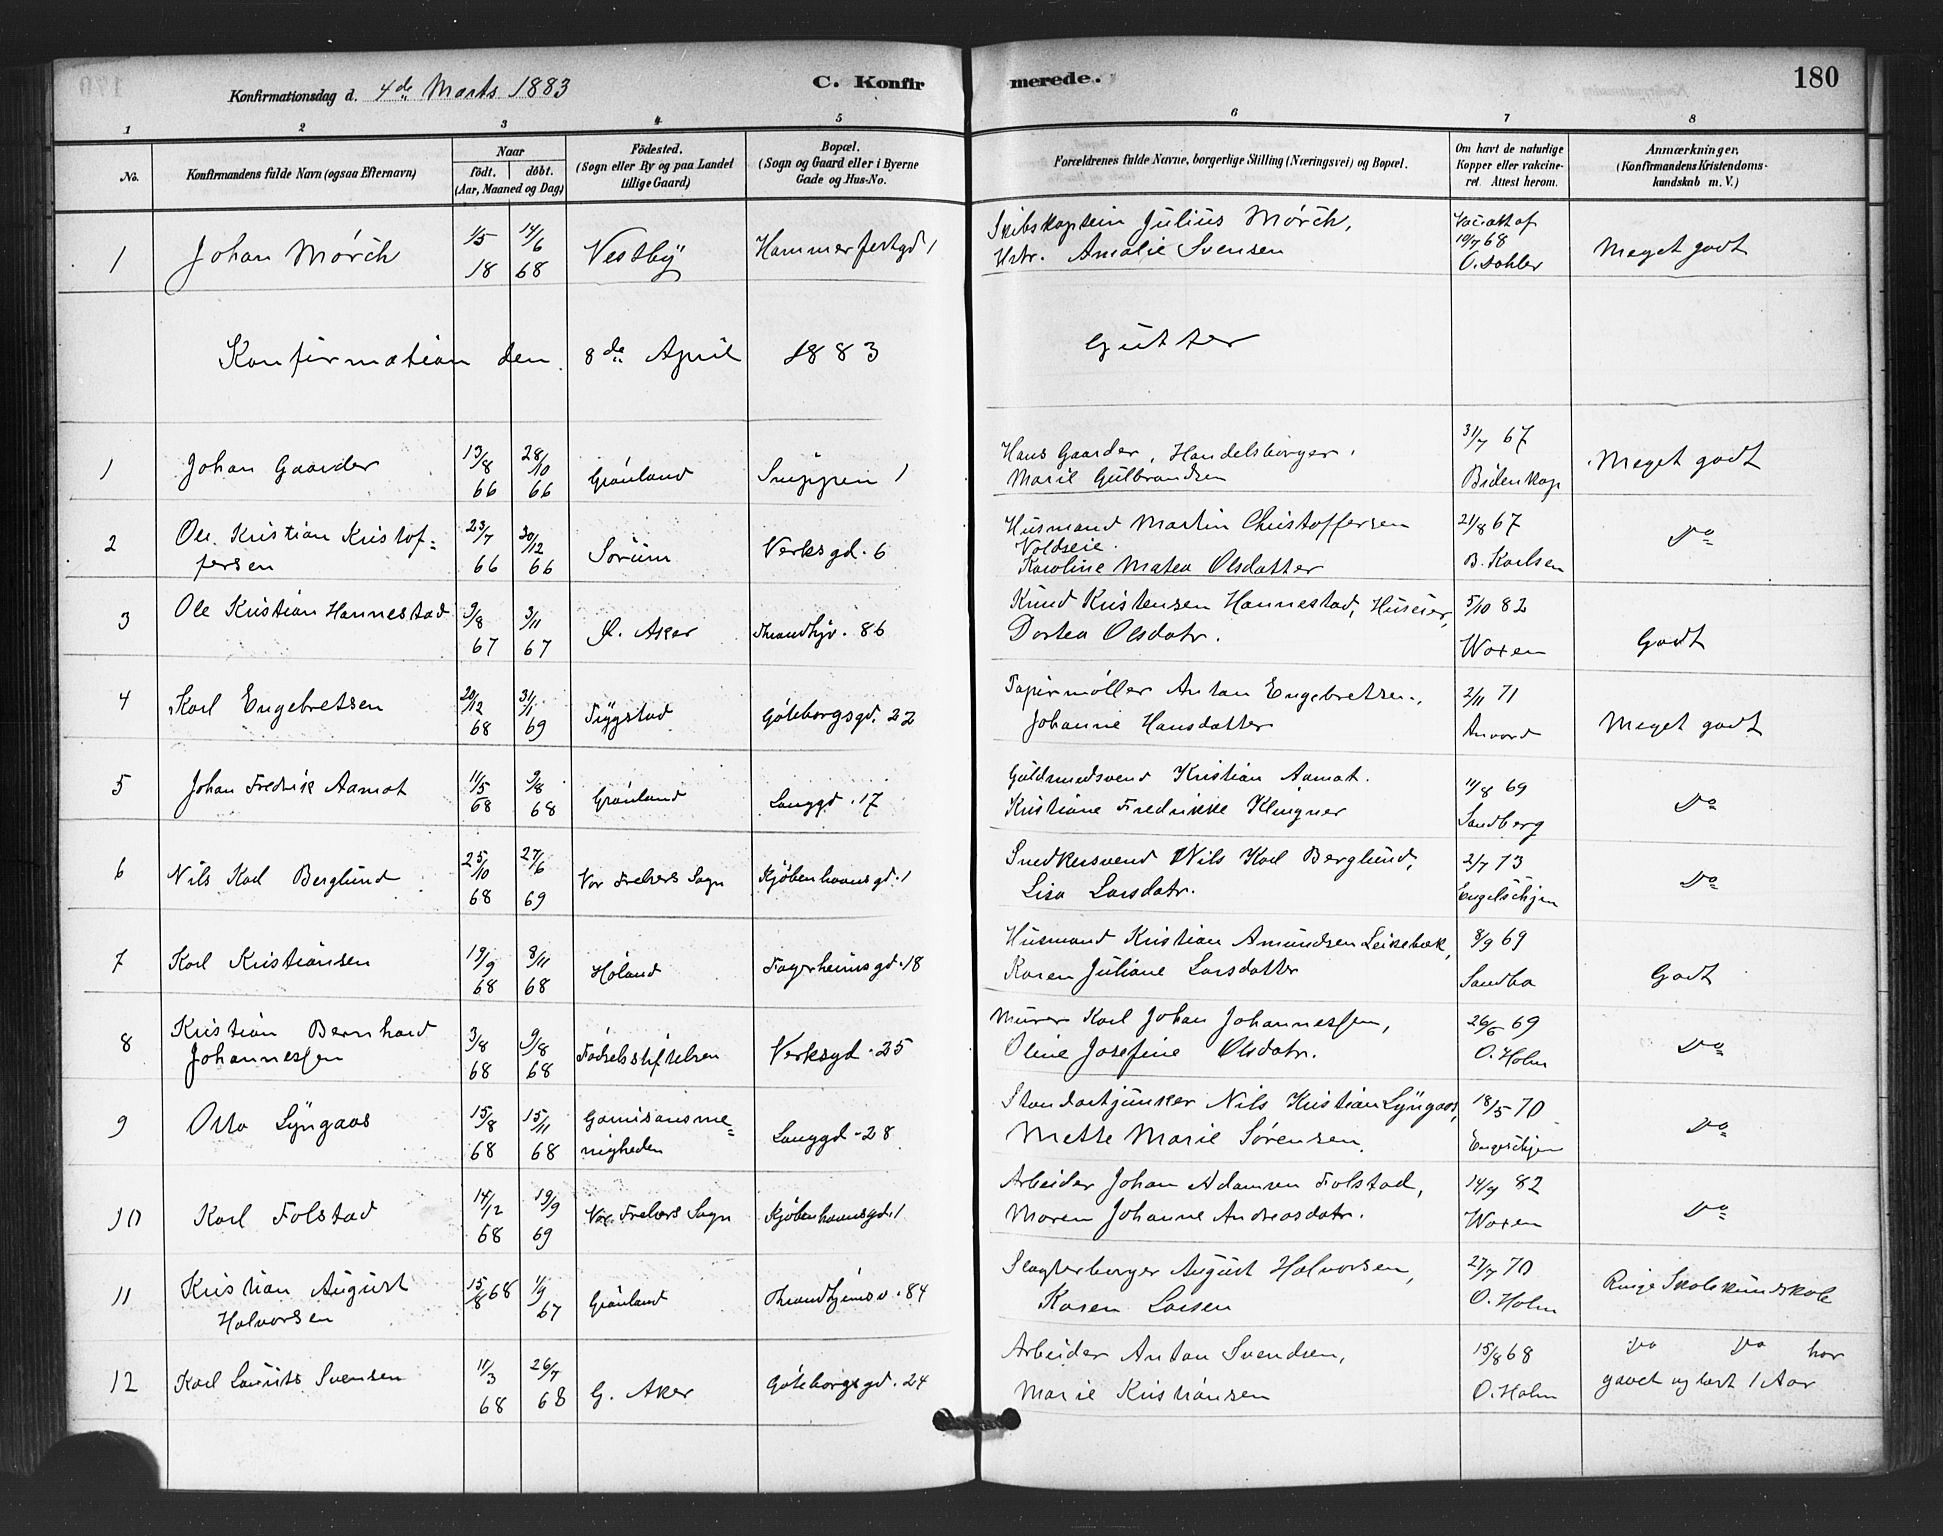 180
Konfirmationsdag d. 4de Marts 1883 C. Konfirmerede.
1 2 3 4 5 6 7 8
No.
Konfirmandens fulde Navn (ogsaa Efternavn)
Naar
födt. döbt.
(Aar, Maaned og Dag)
Födested.
(Sogn eller By og paa Landet
tillige Gaard)
Bopæl.
(Sogn og Gaard eller i Byerne
Gade og Hus-No.
Forældrenes fulde Navne, borgerlige Stilling (Næringsvei) og Bopæl.
Om havt de naturlige
Kopper eller vakcine-
ret. Attest herom.
Anmærkninger,
(Konfirmandens Kristendoms-
kundskab m. V.)
1 Johan Mørch 1/5 18 14/6 68 Vestby Hammerfestgd 1
Skibskaptein Julius Mørch,
Hstr. Amalie Svensen
19/7 68
Meget godt
Konfirmation den 8de April 1883 Gutter
1 Johan Gaarder 13/8 66 28/10 66 Grønland 1
Hans Gaarder, Handelsborger,
Marie Gulbrandsen
31/7 67
Bidenkap
Meget godt
2 Ole Kristian Kristof=
fersen
23/7 66 30/12 66 Sørum Verksgd. 6
Husmand Martin Christoffersen
Voldseie.
Karoline Matea Olsdatter
21/8 67
B. Karlsen
Do
3 Ole Kristian Hannestad 9/8 67 3/11 67 Ø. Aker Thrandhjv. 86
Knud Kristensen Hannestad, Huseier,
Dortea Olsdatr.
5/10 82
Woxen
Godt
4 Karl Engebretsen 20/12 68 31/1 69 Trygstad Göteborgsgd. 22
Papirmøller Anton Engebretsen,
Johanne Hansdatter
2/11 71
Meget godt
5 Johan Fredrik Aamot 11/5 68 9/8 68 Grønland Langgd. 17
Guldsmedsvend Kristian Aamot.
Kristiane Fredrikke Klingner
11/8 69
Sandberg
Do
6 Nils Karl Berglund 25/10 68 27/6 69 Vor Frelsers Sogn Kjøbenhavnsgd. 1
Snedkersvend Nils Karl Berglund,
Lisa Larsdatr.
2/7 73
Engelschjøn
Do
7 Karl Kristiansen 19/9 68 8/11 68 Høland Fagerheimsgd. 18
Husmand Kristian Amundsen Leikebæk,
Karen Juliane Larsdatter
8/9 69
Sandba
Godt
8 Kristian Bernhard
Johannessen
3/8 68 9/8 68 Fødselsstiftelsen Verksgd. 25
Murer Karl Johan Johannessen,
Oline Josefine Olsdatr.
26/6 69
O. Holm
Do
9 Otto Lyngaas 15/8 68 15/11 68 Garnisonsme=
nigheden
Langgd. 28
Standartjunker Nils Kristian Lyngaas,
Mette Marie Sørensen
18/5 70
Engelschjøn
Do
10 Karl Folstad 14/12 68 19/9 69 Vor Frelsers Sogn Kjøbenhavnsgd. 1
Arbeider Johan Adamsen Folstad,
Maren Johanne Andreasdatr.
14/9 82
Woxen
Do
11 Kristian August
Halvorsen
15/8 68 1/9 67 Grønland Thrandhjemsv. 84
Slagterborger August Halvorsen,
Karen Larsen
27/7 70
O. Holm
Ringe Skolekundskab
12 Karl Laurits Svensen 11/3 68 26/7 68 G. Aker Göteborgsgd. 24
Arbeider Anton Svendsen,
Marie Kristiansen
15/8 68
O. Holm
Do Do har
gaaet og læst 1 Aar